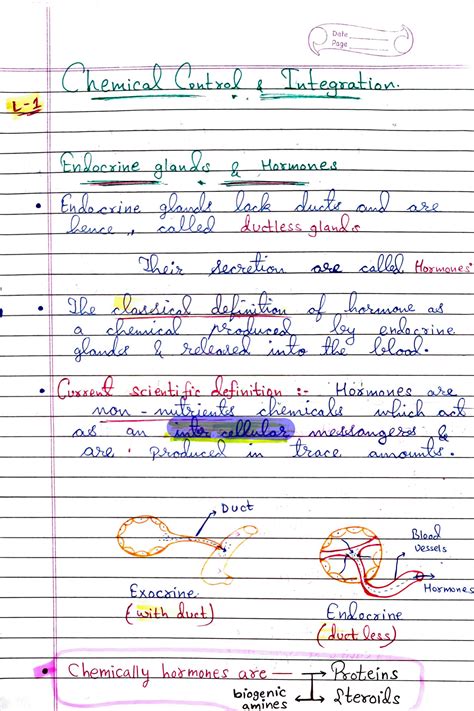 Date
Page
Chemical Control & Integration.
L-1
Endocrine glands & Hormones
• Endocrine glands lack ducts and are
hence ,, called ductless glands
Their secretion are called Hormones
• The classical definition of hormone as
a chemical produced by endocrine
glands & released into the blood.
• Current scientific definition :- Hormones are
non - nutrients chemicals which act
as an inter cellular messangers &
are produced in trace amounts.
Duct
Blood
vessels
Hormones
Exocrine
(with duct)
Endocrine
(duct less)
• Chemically hormones are — Proteins
biogenic
amines
Steroids